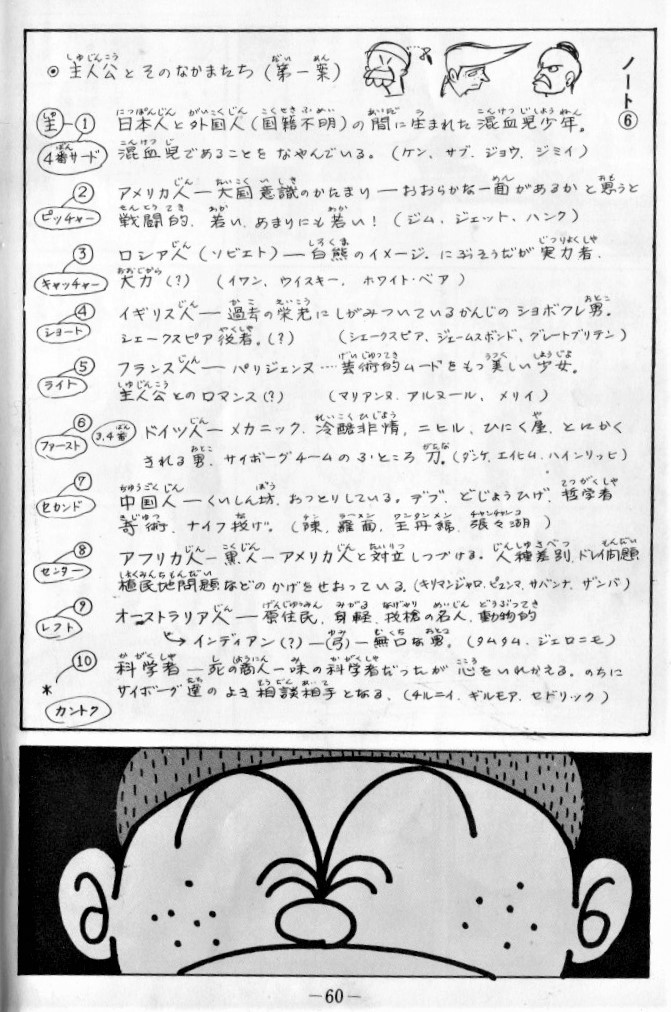 ノート⑥
◎ 主人公とそのなかまたち (第一案)
主 ① 日本人と外国人(国籍不明)の間に生まれた混血児少年。
4番サード 混血児であることをなやんでいる。(ケン、サブ、ジョウ、ジミイ)
② アメリカ人—大国意識のかたまり—おおらかな一面があるかと思うと
ピッチャー 戦闘的、若い、あまりにも若い! (ジム、ジェット、ハンク)
③ ロシア人(ソビエト)—白熊のイメージ。にぶそうだが実力者、
キャッチャー 大力(?) (イワン、ウイスキー、ホワイト・ベア)
④ イギリス人—過去の栄光にしがみついているかんじのショボクレ男。
ショート シェークスピア役者。(?) (シェークスピア、ジェームスボンド、グレートブリテン)
⑤ フランス人—パリジェンヌ‥‥芸術的ムードをもつ美しい少女。
ライト 主人公とのロマンス(?) (マリアンヌ、アルヌール、メリイ)
⑥ 3,4番 ドイツ人—メカニック、冷酷非情、ニヒル、ひにく屋、とにかく
ファースト きれる男、サイボーグチームのふところ刀。(ダンケ、エイヒム、ハインリッヒ)
⑦ 中国人—くいしん坊、おっとりしている。デブ、どじょうひげ、哲学者
セカンド 奇術、ナイフ投げ。(陳、羅面、王丹綿、張々湖)
⑧ アフリカ人—黒人—アメリカ人と対立しつづける。人種差別、ドレイ問題
センター 植民地問題などのかげをせおっている。(キリマンジャロ、ピュンマ、サバンナ、ザンバ)
⑨ オーストラリア人—原住民、身軽、投槍の名人、動物的
レフト インディアン(?)—(弓)—無口な男。(タムタム、ジェロニモ)
⑩ 科学者—死の商人一味の科学者だったが心をいれかえる。のちに
* カントク サイボーグ達のよき相談相手となる。(チルニイ、ギルモア、セドリック)
—60—